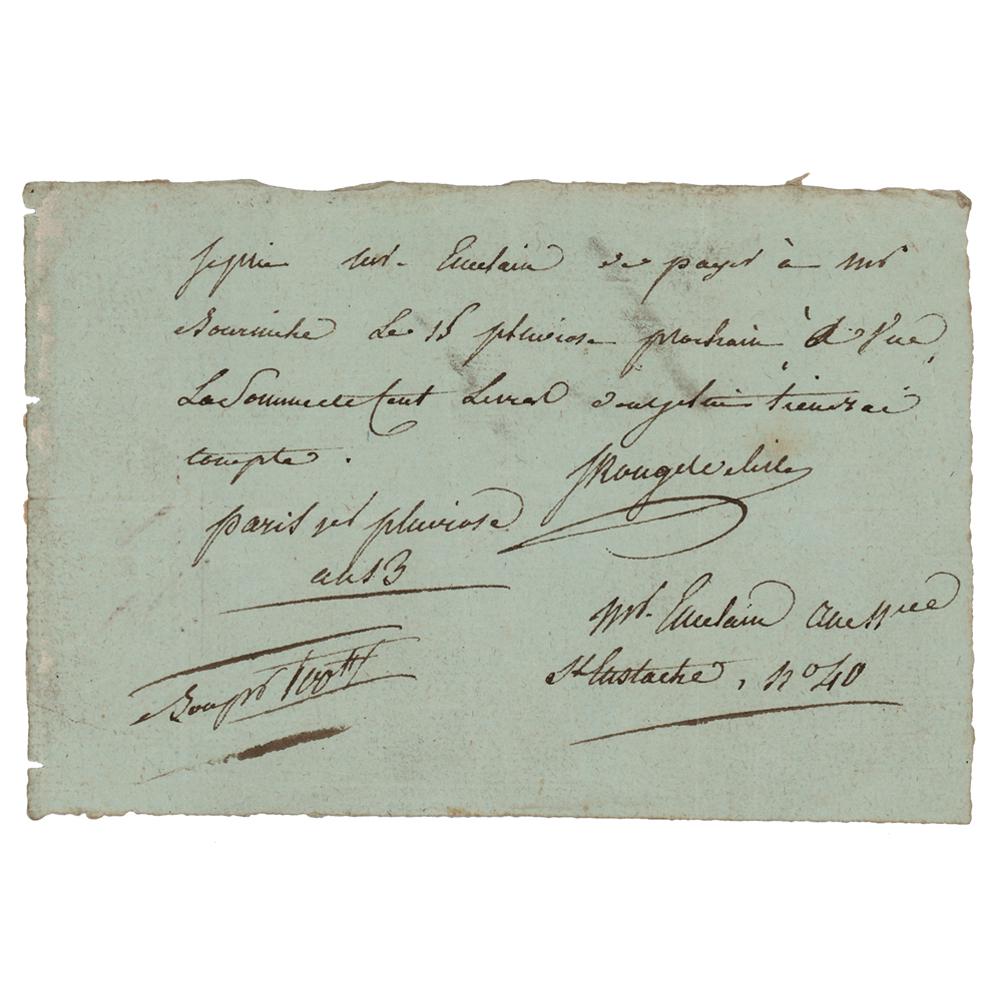 Je prie Mr. Emelain de payer à Mr
Bourniche Le 15 pluviose prochain à Vue
La Somme de Cent Livres dont je lui tiendrai
compte.
JRouget de lisle
paris 1er pluviose
an 13
Mr. Emelain rue nve
St Eustache, no 40
Bon pr 100tt